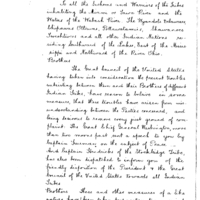 To all the Sachems and Warriors of the Tribes
inhabiting the Miami or Lower River and the
Waters of the Wabash River. The Wyandots Delawares
Chipawas Ottawas, Pottawatamies, Shawanese
and all other Indian Nations re-
siding Southward of the Lakes, East of the Missis-
sippi and Northward of the River Ohio.
Brothers
The Great Council of the United States
having taken into consideration the present Troubles
existing between them and their Brothers of different
Indian Tribes, have reason to believe on some
reasons, that these Troubles have arisen from mis-
understandings between the Parties concerned, and
being desirous to remove every just ground of com-
plaint. The Great Chief General Washington, more
than two moons past sent a speech to you by
Captain Trueman on the subject of Peace
And Captain Hendricks of the Stockbridge Tribe,
has also been dispatched to inform you of the
friendly disposition of the President & the Great
Council of the United States towards all Indian
Tribes
Brothers These and other measures of a like